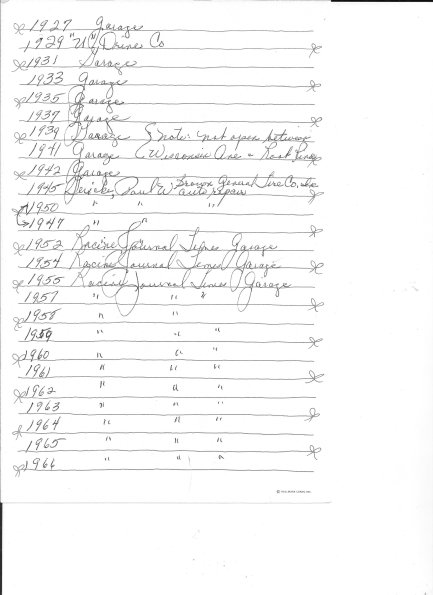 1927 Garage
1929 "U" Drive Co
1931 Garage
1933 Garage
1935 Garage
1937 Garage
1939 Garage note: not open between
1941 Garage (Wisconsin Ave &
1942 Garage
1945 Paul W Brown General Tire Co, Inc auto repair
1950 " " "
1947 " "
1952 Racine Journal Times Garage
1954 Racine Journal Times Garage
1955 Racine Journal Times Garage
1957 " " "
1958 " "
1959 " " "
1960 " " "
1961 " " "
1962 " " "
1963 " " "
1964 " " "
1965 " " "
1966 " " "